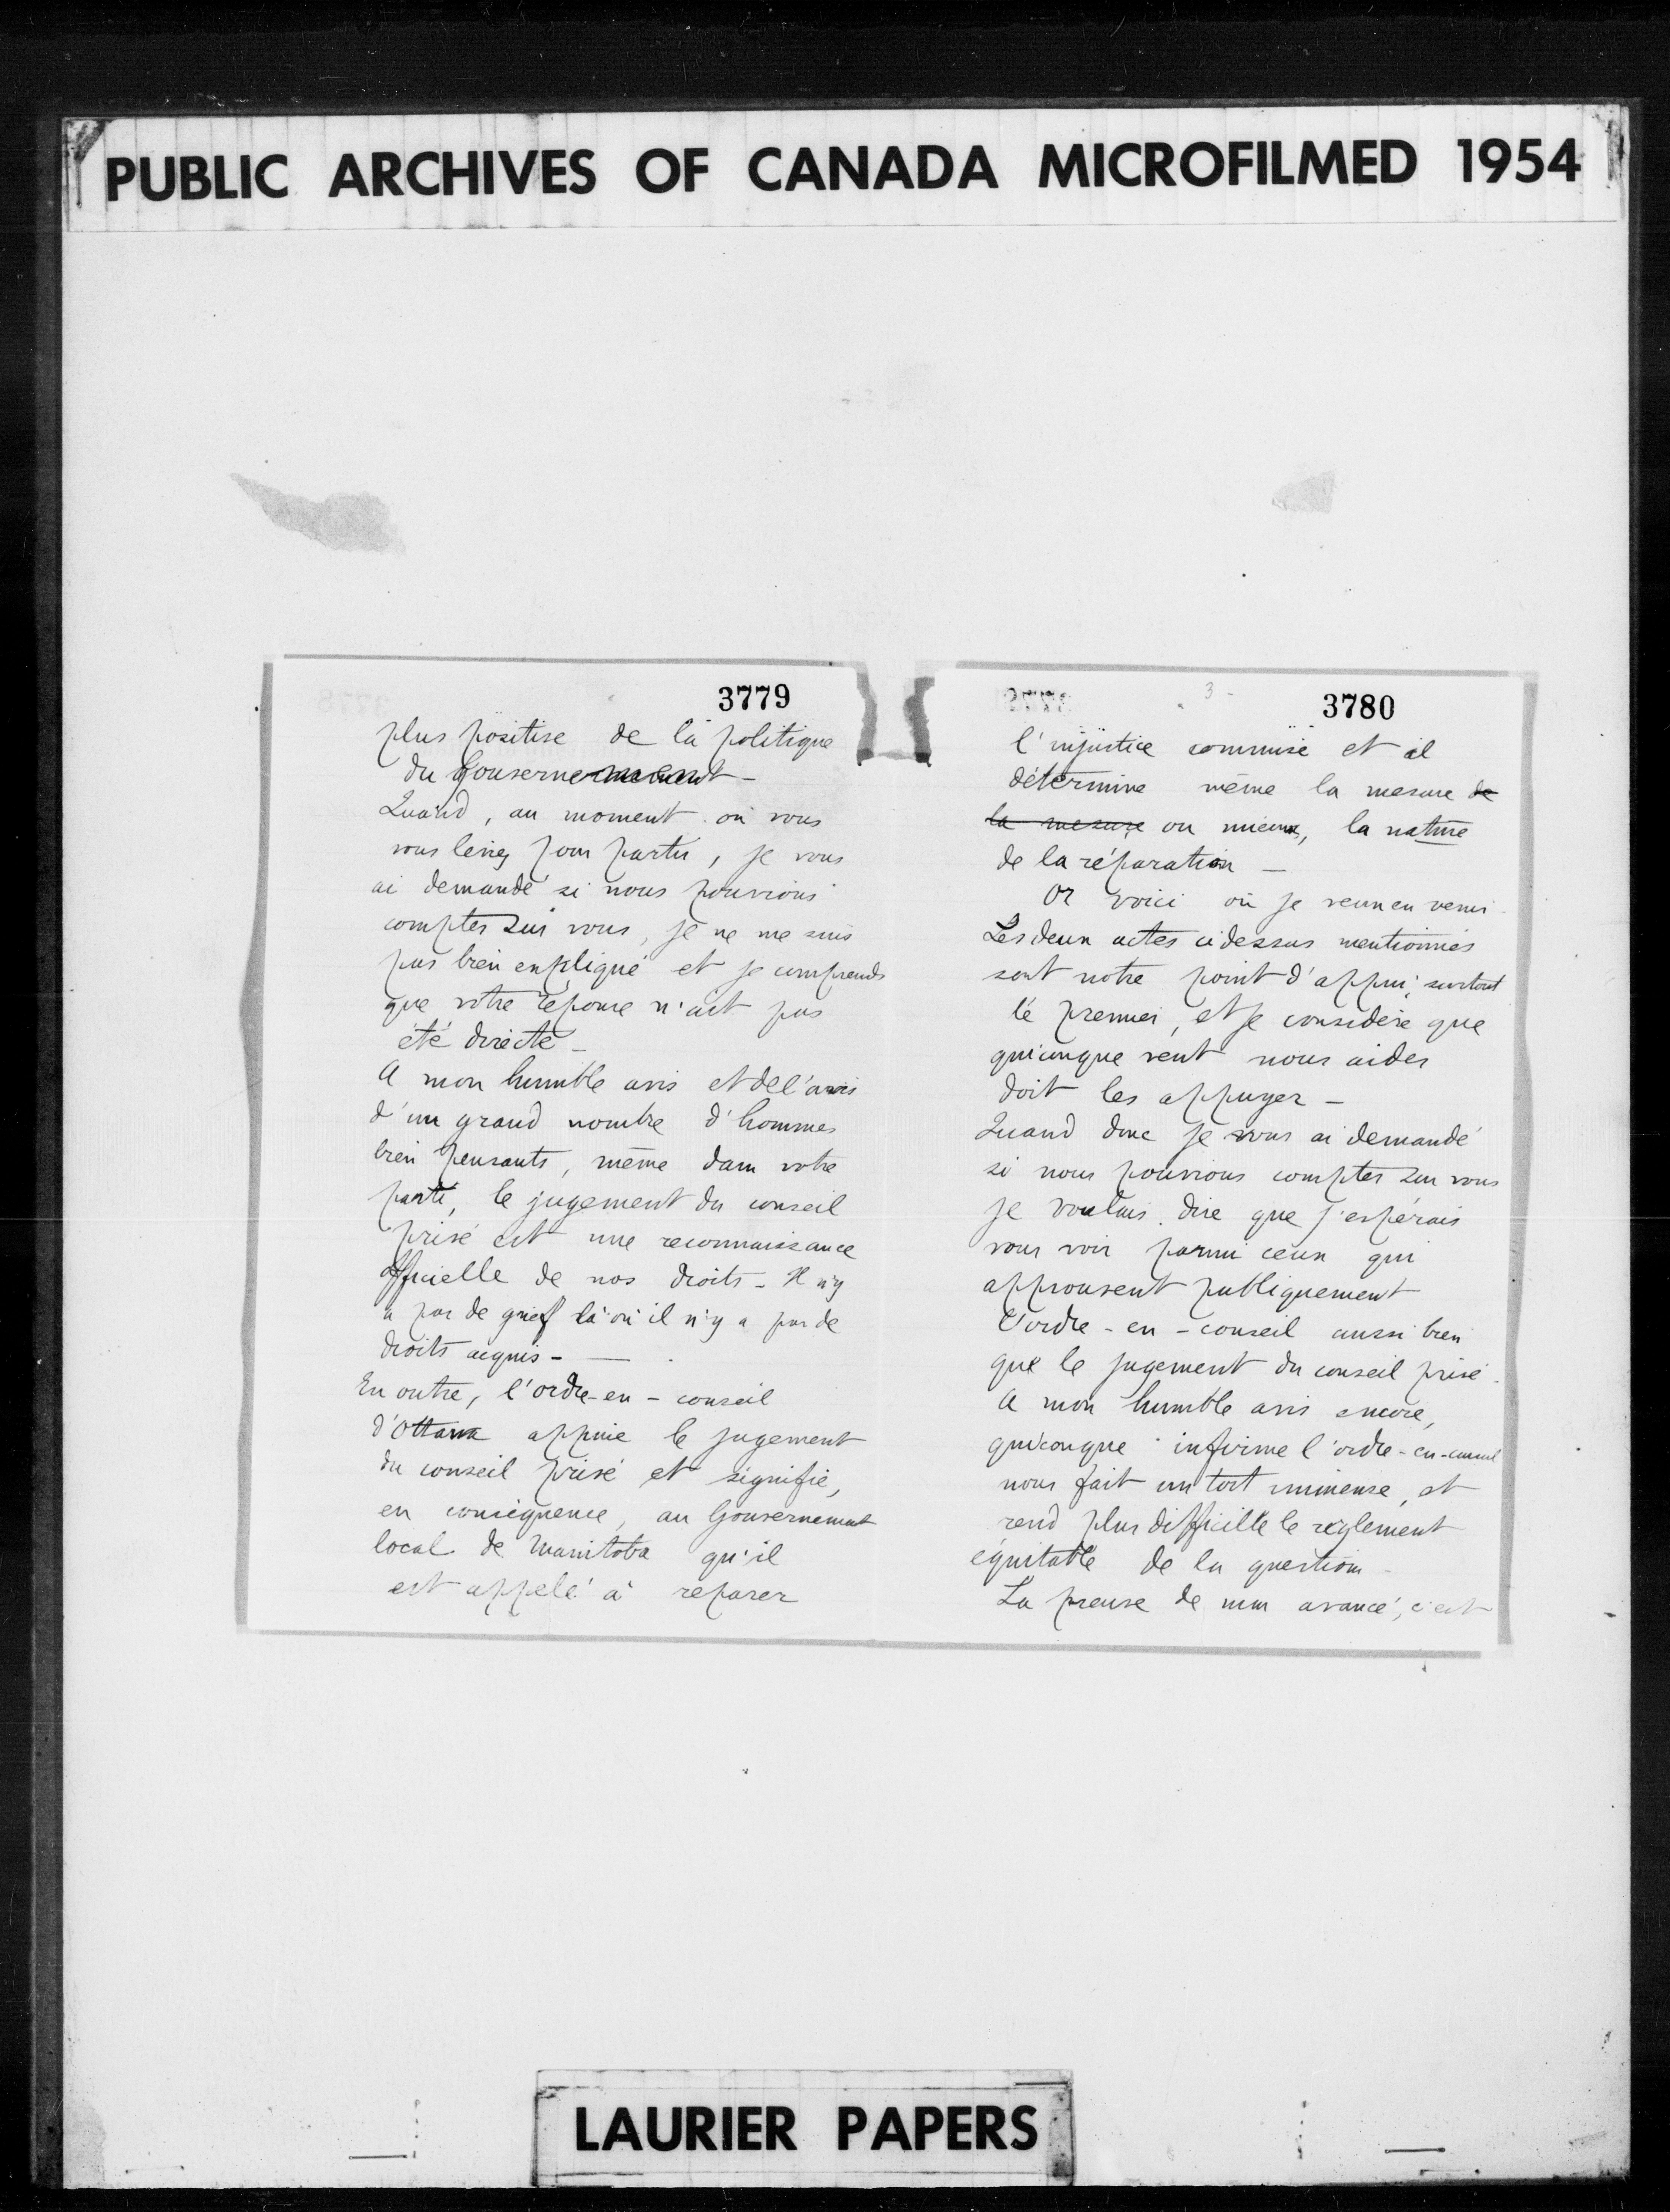 PUBLIC ARCHIVES OF CANADA MICROFILMED 1954
3779
plus positive de la politique
du Gouvernement -
Quand, au moment où vous
vous leviez pour partir, je vous
ai demandé si nous pouvions
compter sur vous, je ne me suis
pas bien expliqué et je comprends
que votre réponse n'ait pas
été directe -
A mon humble avis et de l'avis
d'un grand nombre d'hommes
bien pensants, même dans votre
parti, le jugement du conseil
privé est une reconnaissance
officielle de nos droits - Il n'y
a pas de grief là où il n'y a pas de
droits acquis -
En outre, l'ordre-en-conseil
d'Ottawa appuie le jugement
du conseil privé et signifie,
en conséquence, au Gouvernement
local de Manitoba qu'il
est appelé à réparer
3 -
3780
l'injustice commise et il
détermine même la mesure de
la mesure ou mieux, la nature
de la réparation -
Or voici où je veux en venir.
Les deux actes ci dessus mentionnés
sont notre point d'appui, surtout
le premier, et je considère que
quiconque veut nous aider
doit les appuyer -
Quand donc je vous ai demandé
si nous pouvions compter sur vous
je voulais dire que j'espérais
vous voir parmi ceux qui
approuvent publiquement
l'ordre-en-conseil aussi bien
que le jugement du conseil privé.
A mon humble avis encore,
quiconque infirme l'ordre-en-conseil
nous fait un tort immense, et
rend plus difficille le règlement
équitable de la question -
La preuve de mon avancé, c'est
LAURIER PAPERS